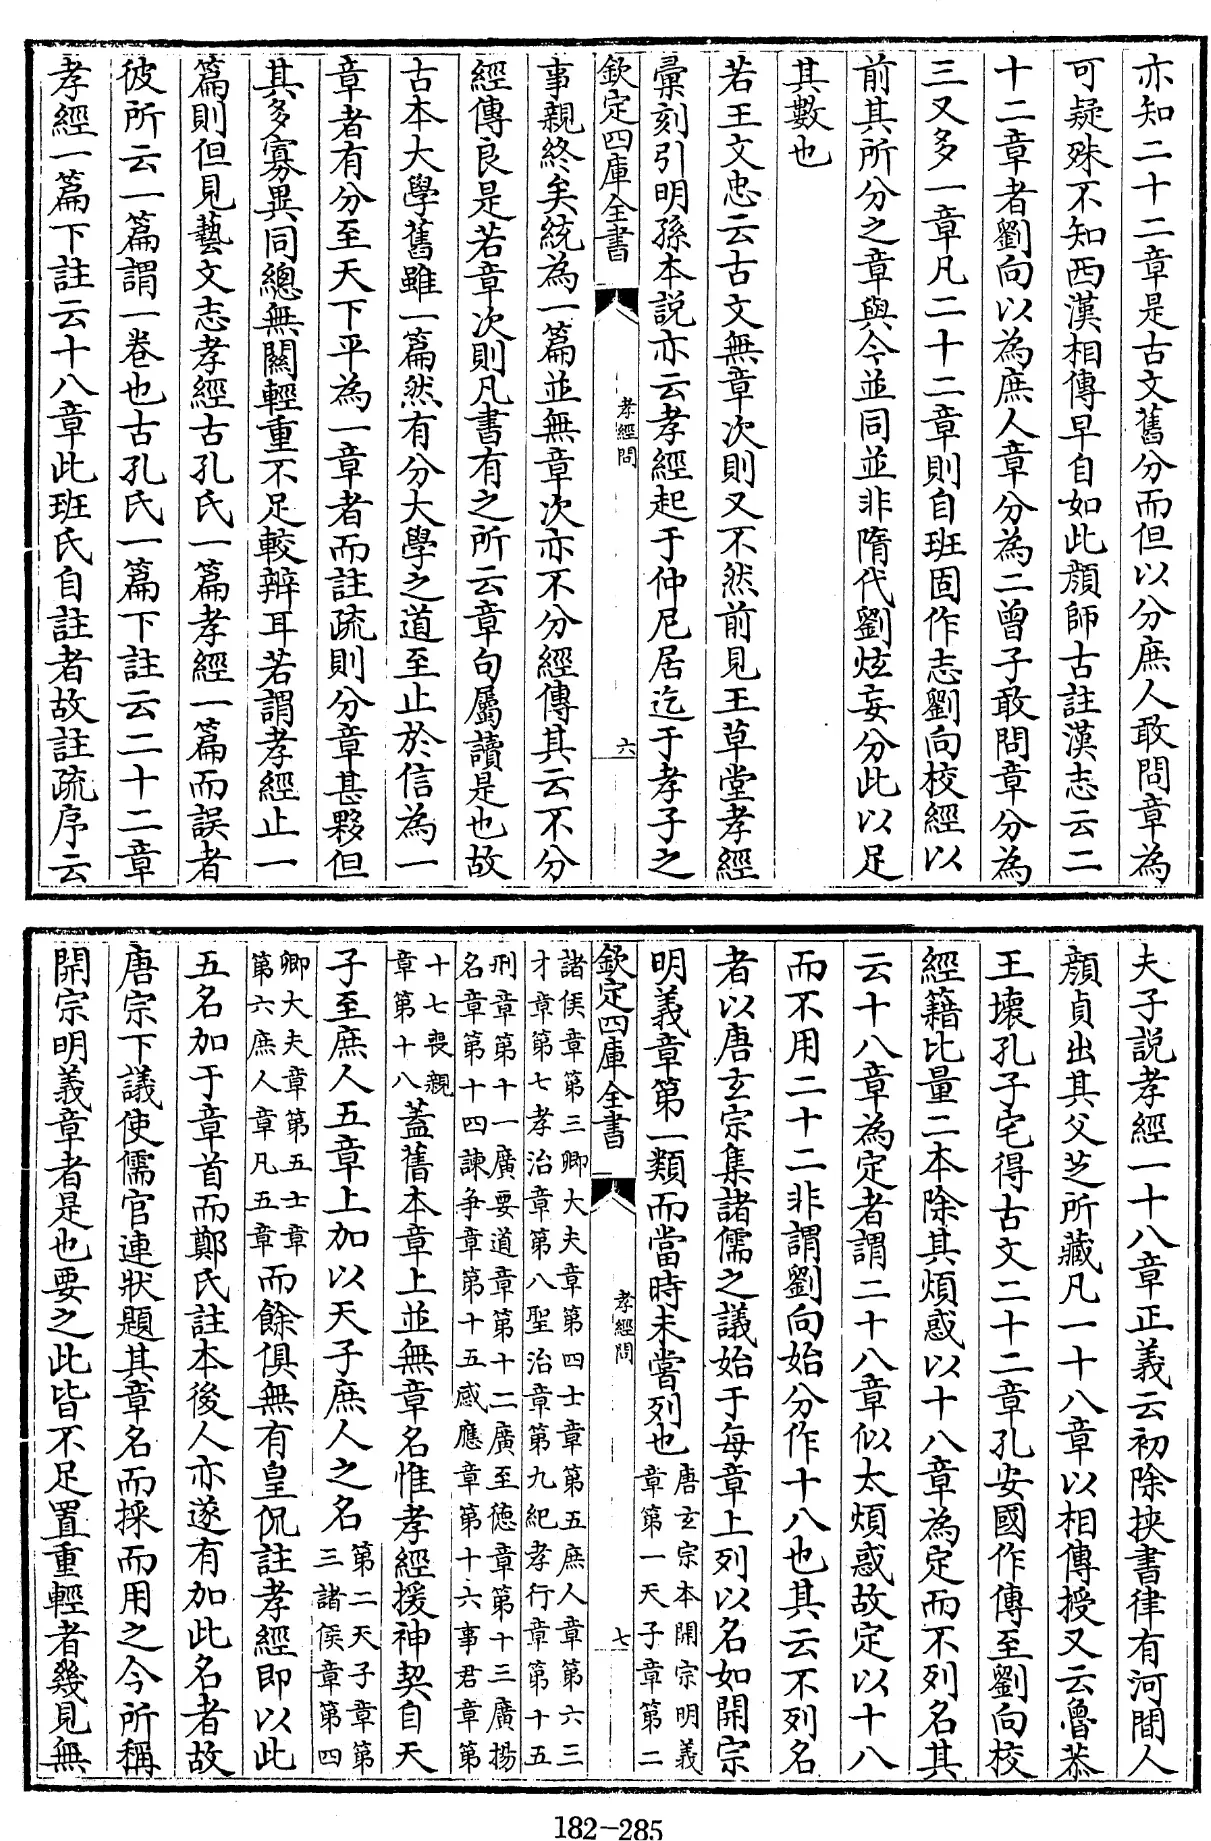 亦知二十二章是古文舊分而但以分庶人敢問章為
可疑殊不知西漢相傳早自如此顔師古註漢志云二
十二章者劉向以為庶人章分為二曾子敢問章分為
三又多一章凡二十二章則自班固作志劉向校經以
前其所分之章與今並同並非隋代劉炫妄分此以足
其數也
若王文忠云古文無章次則又不然前見王草堂孝經
彚刻引明孫本説亦云孝經起于仲尼居迄于孝子之
欽定四庫全書 孝經問 六
事親終矣統為一篇並無章次亦不分經傳其云不分
經傳良是若章次則凡書有之所云章句屬讀是也故
古本大學舊雖一篇然有分大學之道至止於信為一
章者有分至天下平為一章者而註疏則分章甚夥但
其多寡異同總無關輕重不足較辨耳若謂孝經止一
篇則但見藝文志孝經古孔氏一篇孝經一篇而誤者
彼所云一篇謂一卷也古孔氏一篇下註云二十二章
孝經一篇下註云十八章此班氏自註者故註疏序云
夫子説孝經一十八章正義云初除挾書律有河間人
顔貞出其父芝所藏凡一十八章以相傳授又云魯恭
王壞孔子宅得古文二十二章孔安國作傳至劉向校
經籍比量二本除其煩惑以十八章為定而不列名其
云十八章為定者謂二十八章似太煩惑故定以十八
而不用二十二非謂劉向始分作十八也其云不列名
者以唐玄宗集諸儒之議始于每章上列以名如開宗
明義章第一類而當時未嘗列也唐玄宗本開宗明義
章第一天子章第二
欽定四庫全書 孝經問 七
諸侯章第三卿大夫章第四士章第五庶人章第六三
才章第七孝治章第八聖治章第九紀孝行章第十五
刑章第十一廣要道章第十二廣至德章第十三廣揚
名章第十四諫争章第十五感應章第十六事君章第
十七喪親
章第十八蓋舊本章上並無章名惟孝經援神契自天
子至庶人五章上加以天子庶人之名第二天子章第
三諸侯章第四
卿大夫章第五士章
第六庶人章凡五章而餘俱無有皇侃註孝經即以此
五名加于章首而鄭氏註本後人亦遂有加此名者故
唐宗下議使儒官連狀題其章名而採而用之今所稱
開宗明義章者是也要之此皆不足置重輕者幾見無
182-285